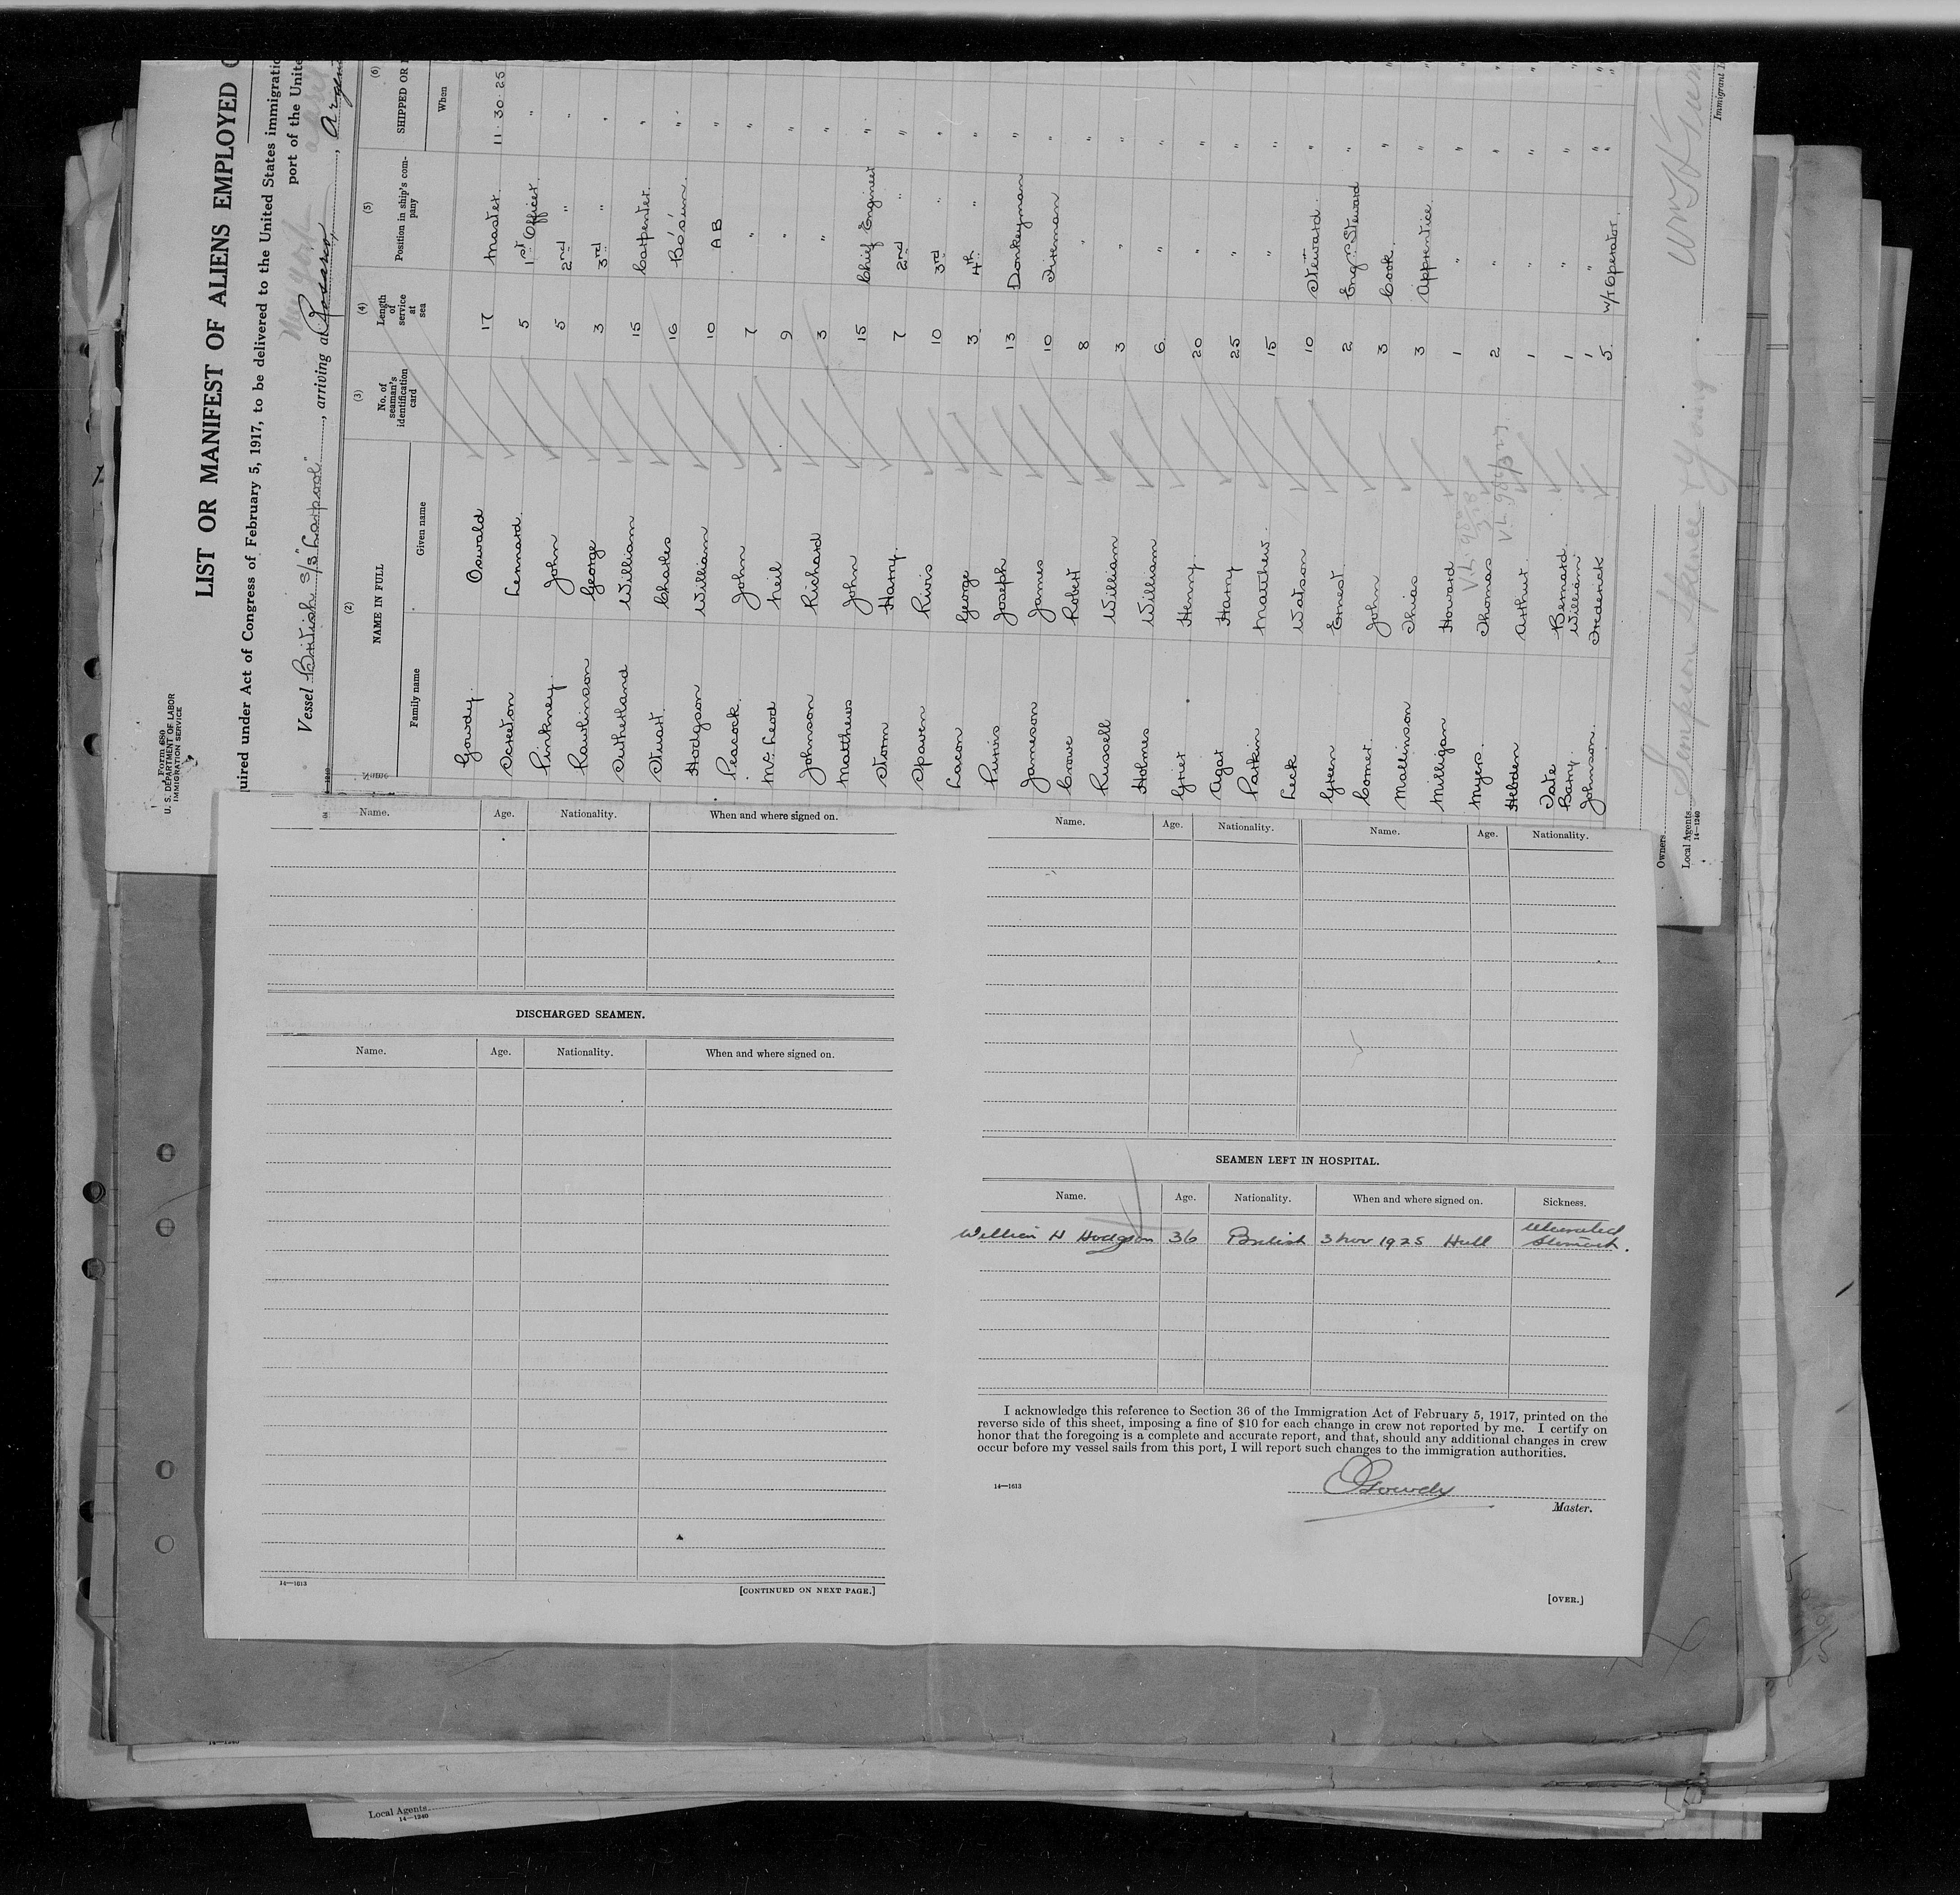 Form 680
U. S. DEPARTMENT OF LABOR
IMMIGRATION SERVICE
LIST OR MANIFEST OF ALIENS EMPLOYED O
uired under Act of Congress of February 5, 1917, to be delivered to the United States immigratio
port of the Unite
Vessel British S/S "Carpool", arriving at Rosario, Argen
(2) (3) (4) (5) (6)
NAME IN FULL No. of seaman's identification card Length of service at sea Position in ship's company SHIPPED OR
Family name Given name When
Gowdy Oswald 17 Master 11.30.25
Screeton Lennard 5 1st Officer "
Pinkney John 5 2nd " "
Rawlinson George 3 3rd " "
Sutherland William 15 Carpenter "
Stuart Charles 16 Bo's'un "
Hodgson William 10 AB "
Peacock John 7 " "
McLeod Neil 9 " "
Johnson Richard 3 " "
Matthews John 15 Chief Engineer "
Storm Harry 7 2nd " "
Spaven Rivis 10 3rd " "
Lacon George 3 4th " "
Purvis Joseph 13 Donkeyman "
Jameson James 10 Fireman "
Crowe Robert 8 " "
Russell William 3 " "
Holmes William 6 " "
Grier Henry 20 " "
Agar Harry 25 " "
Parkin Matthew 15 " "
Leck Watson 10 Steward "
Green Ernest 2 Engrs Steward "
Comer John 3 Cook "
Mallinson Thias 3 Apprentice "
Milligan Howard 1 " "
Myers Thomas 2 " "
Hebden Arthur 1 " "
Tate Bernard 1 " "
Barry William 1 " "
Johnson Frederick 5 W/T Operator "
Owners
Local Agents
14—1240
Immigrant I
Name. Age. Nationality. When and where signed on.
DISCHARGED SEAMEN.
Name. Age. Nationality. When and where signed on.
14—1613
[CONTINUED ON NEXT PAGE.]
Name. Age. Nationality. Name. Age. Nationality.
SEAMEN LEFT IN HOSPITAL.
Name. Age. Nationality. When and where signed on. Sickness.
William H Hodgson 36 British 3 Nov 1925 Hull Ulcerated Stomach.
I acknowledge this reference to Section 36 of the Immigration Act of February 5, 1917, printed on the
reverse side of this sheet, imposing a fine of $10 for each change in crew not reported by me. I certify on
honor that the foregoing is a complete and accurate report, and that, should any additional changes in crew
occur before my vessel sails from this port, I will report such changes to the immigration authorities.
14—1613
OGowdy
Master.
[OVER.]
Local Agents
14—1240